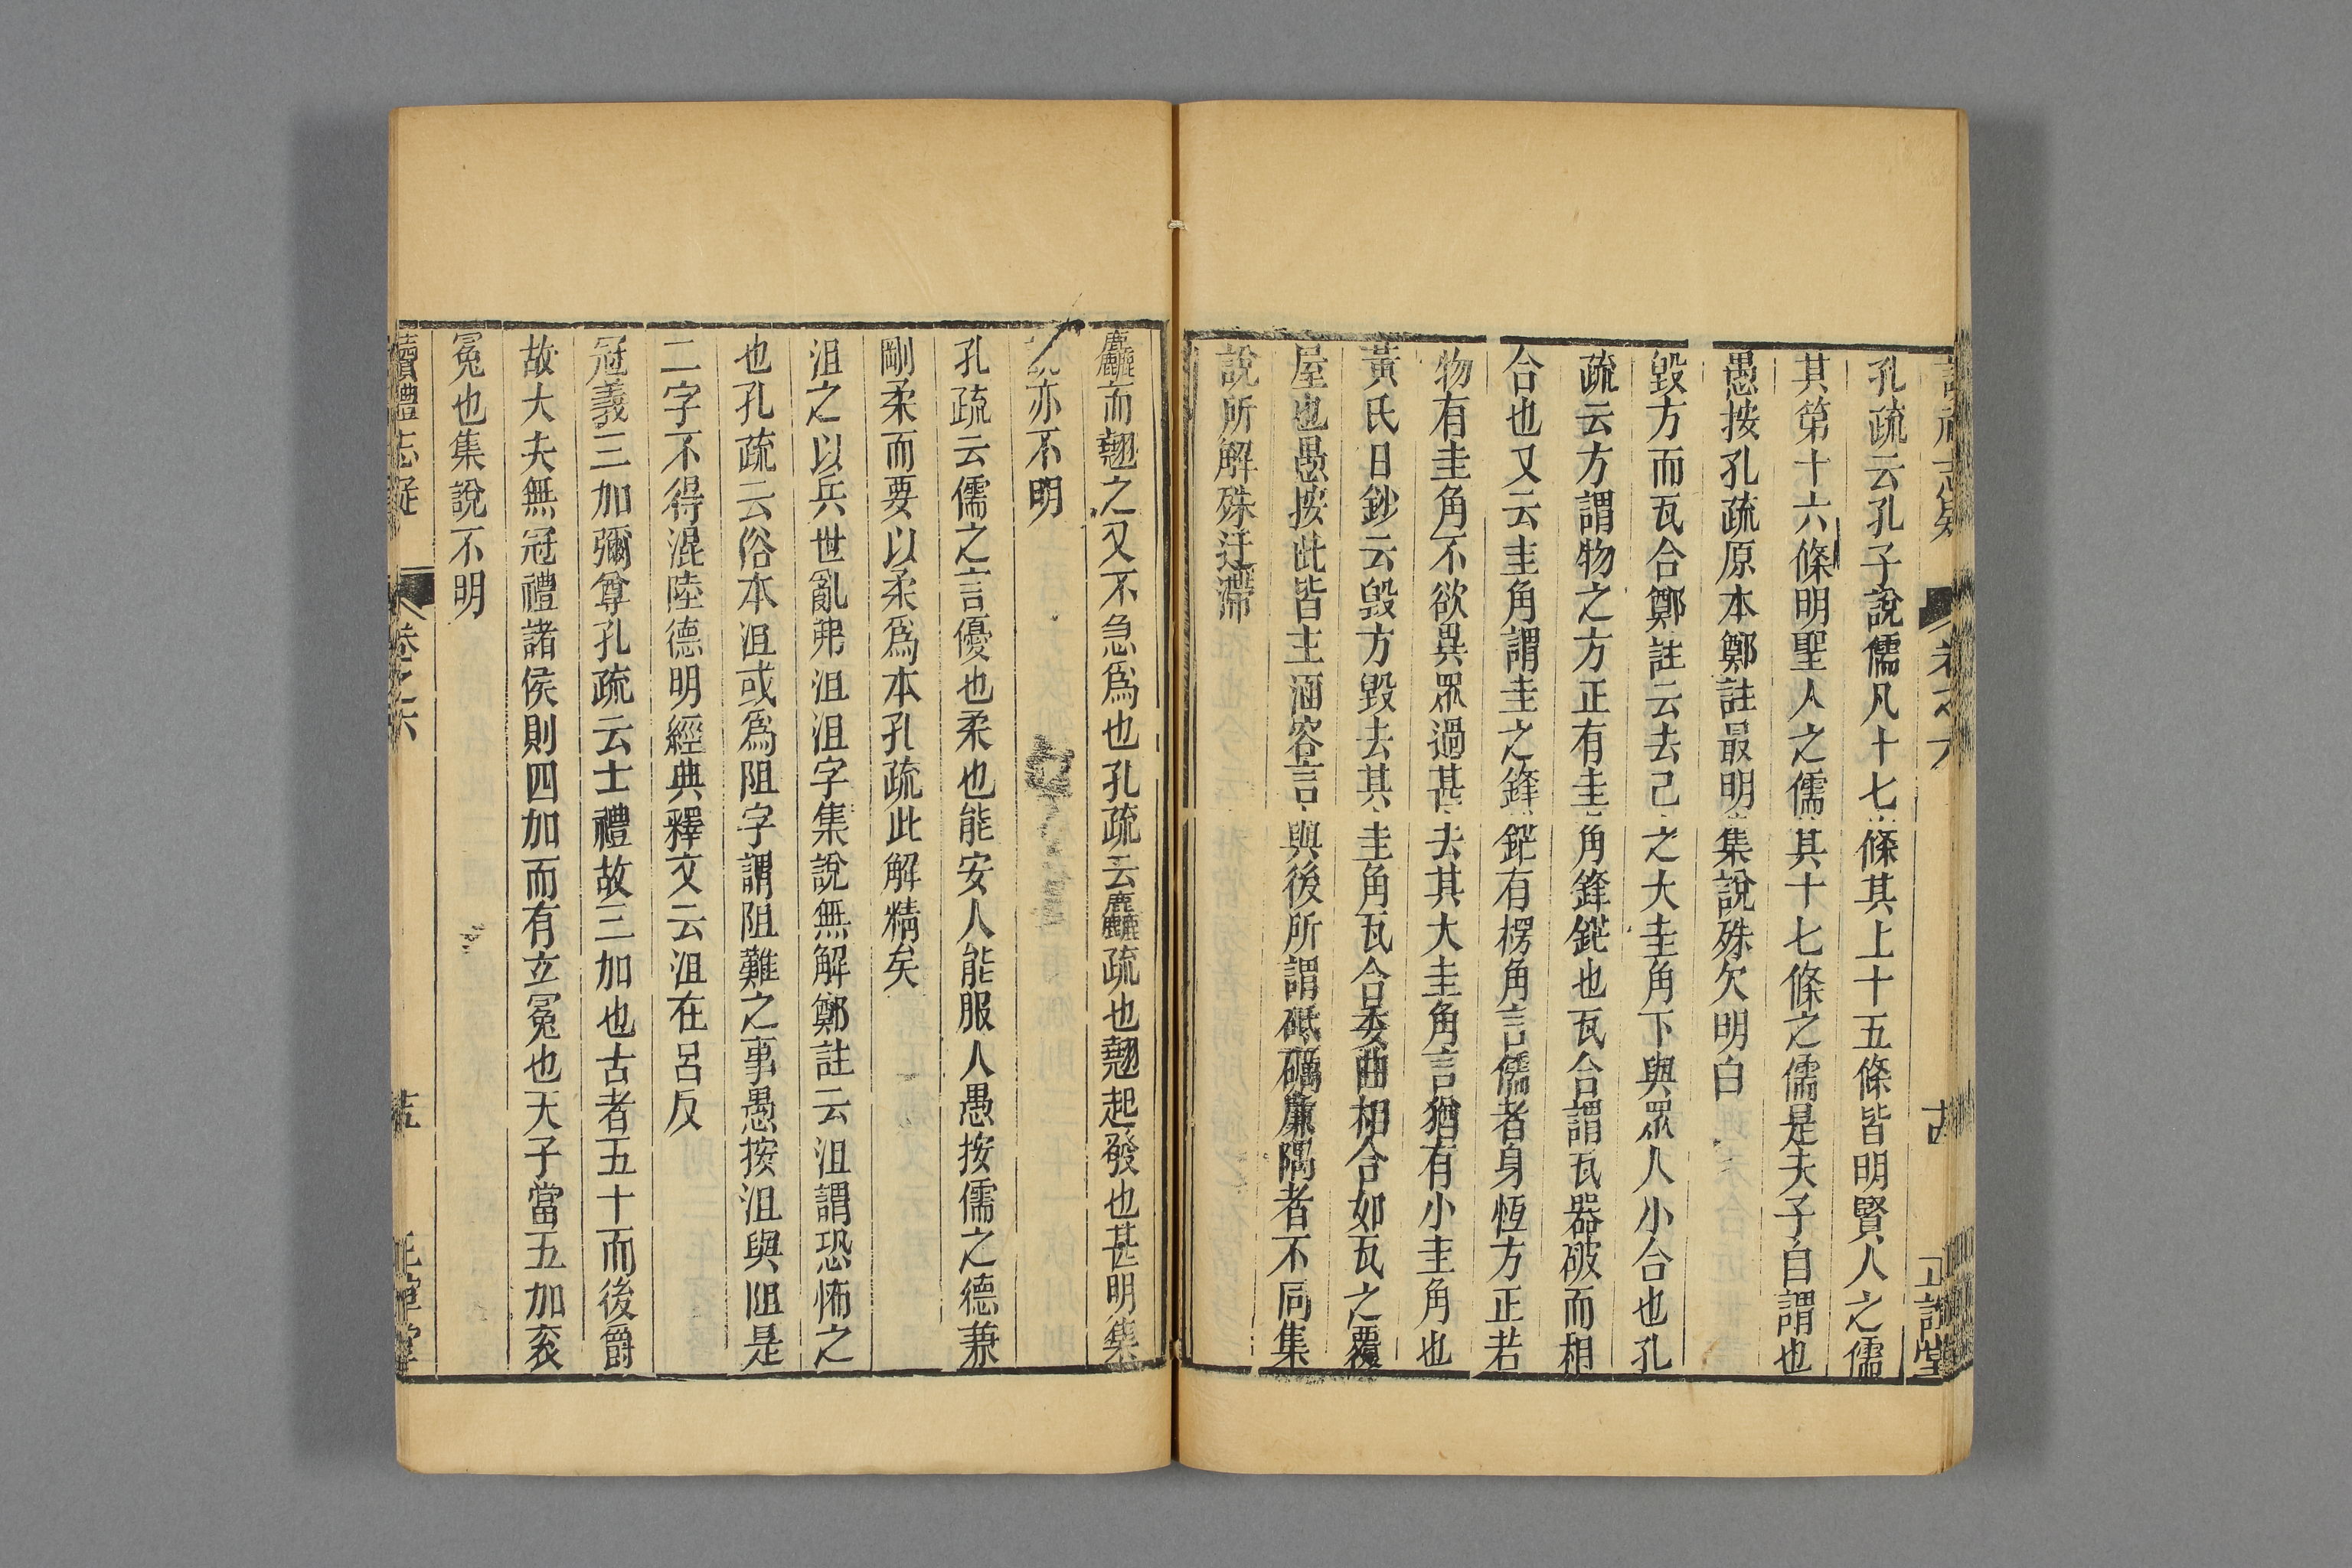 卷之六
正誼堂
孔疏云孔子說儒凡十七條其上十五條皆明賢人之儒
其第十六條明聖人之儒其十七條之儒是夫子自謂也
愚按孔疏原本鄭註最明集說殊欠明白
毀方而瓦合鄭註云去己之大圭角下與眾人小合也孔
疏云方謂物之方正有圭角鋒鋩也瓦合謂瓦器破而相
合也又云圭角謂圭之鋒鋩有楞角言儒者身恆方正若
物有圭角不欲異眾過甚去其大圭角言猶有小圭角也
黃氏日鈔云毀方毀去其圭角瓦合委曲相合如瓦之覆
屋也愚按此皆主涵容言與後所謂砥礪廉隅者不同集
說所解殊迂滯
麤而翹之又不急爲也孔疏云麤疏也翹起發也甚明集
亦不明
孔疏云儒之言優也柔也能安人能服人愚按儒之德兼
剛柔而要以柔爲本孔疏此解精矣
沮之以兵世亂弗沮沮字集說無解鄭註云沮謂恐怖之
也孔疏云俗本沮或爲阻字謂阻難之事愚按沮與阻是
二字不得混陸德明經典釋文云沮在呂反
冠義三加彌尊孔疏云士禮故三加也古者五十而後爵
故大夫無冠禮諸侯則四加而有立冕也天子當五加袞
冕也集說不明
讀禮志疑
卷之六